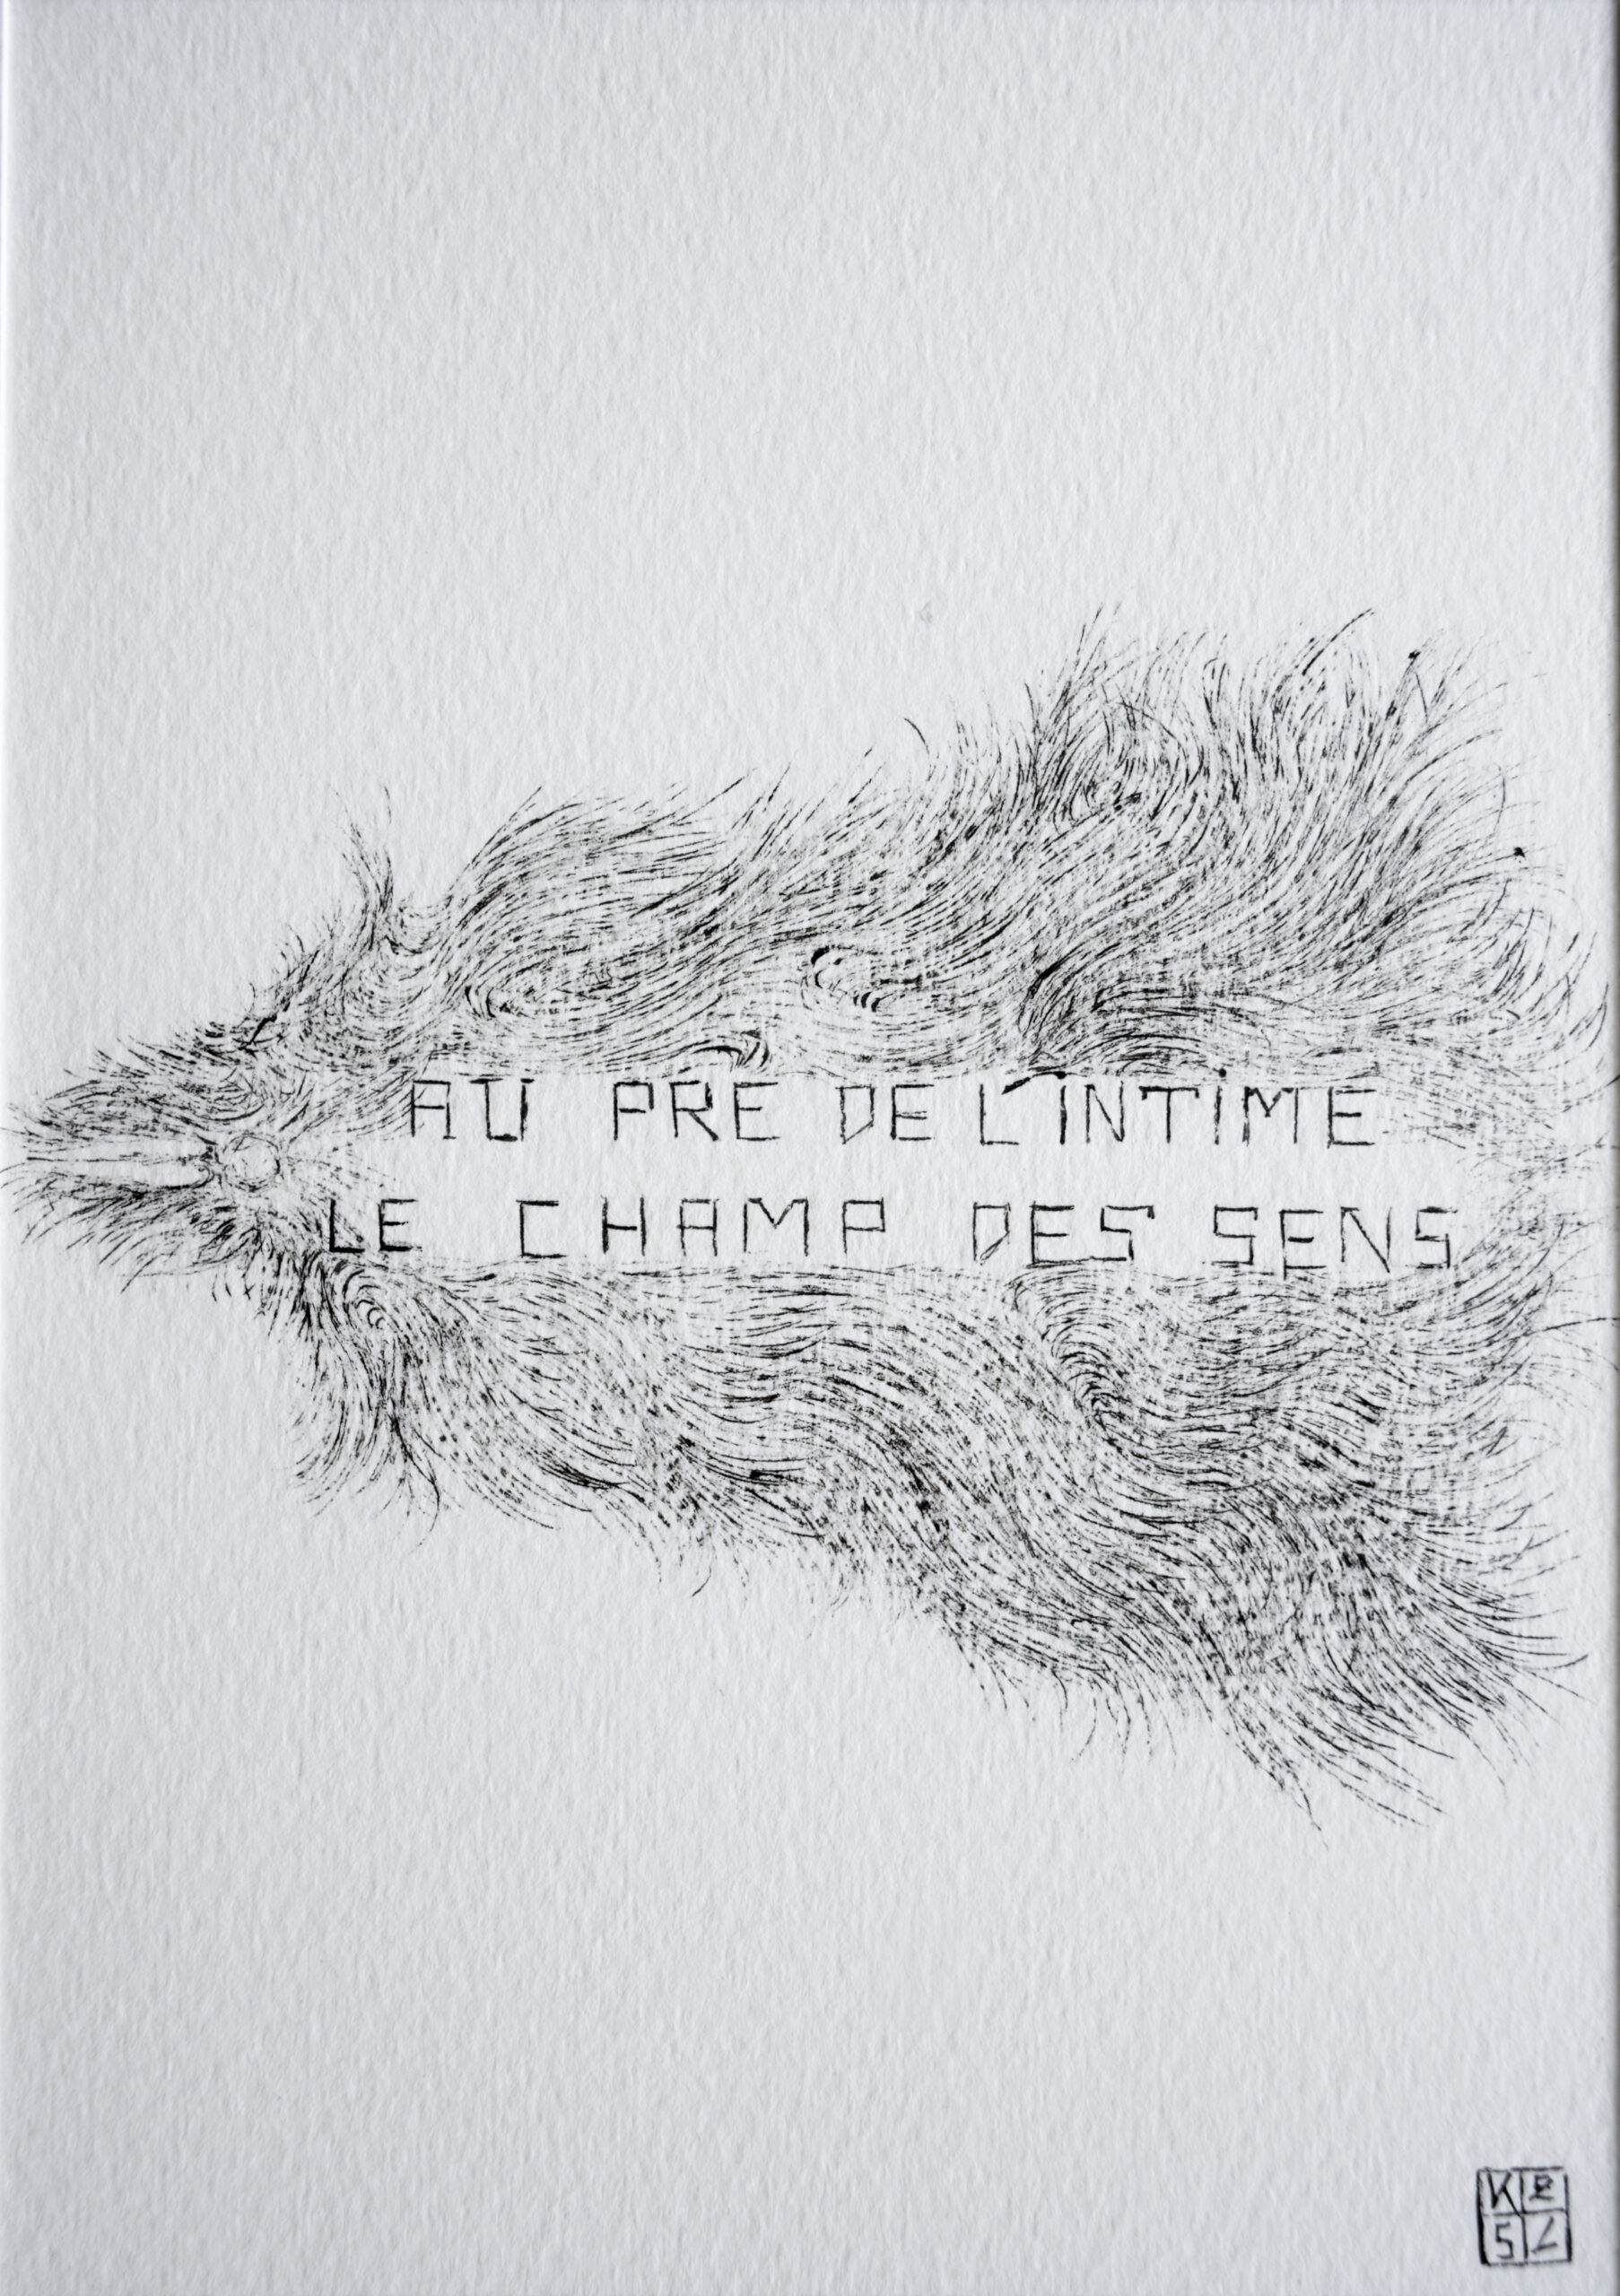 AU PRE DE L'INTIME
LE CHAMP DES SENS